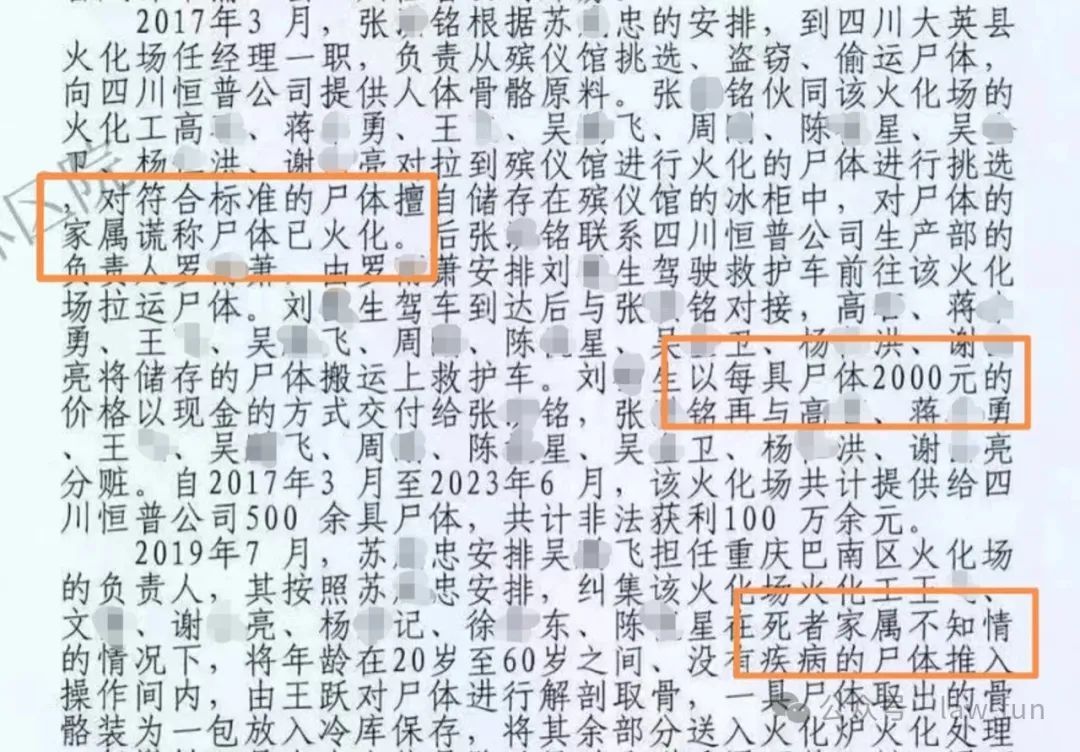 2017年3月，张 铭根据苏 忠的安排，到四川大英县
火化场任经理一职，负责从殡仪馆挑选、盗窃、偷运尸体，
向四川恒普公司提供人体骨骼原料。张 铭伙同该火化场的
火化工高 、蒋 勇、王 、吴 飞、周 、陈 星、吴
卫、杨 洪、谢 亮对拉到殡仪馆进行火化的尸体进行挑选
，对符合标准的尸体擅自储存在殡仪馆的冰柜中，对尸体的
家属谎称尸体已火化。后张 铭联系四川恒普公司生产部的
负责人罗 萧，由罗 萧安排刘 生驾驶救护车前往该火化
场拉运尸体。刘 生驾车到达后与张 铭对接，高 、蒋
勇、王 、吴 飞、周 、陈 星、吴 卫、杨 洪、谢
亮将储存的尸体搬运上救护车。刘 生以每具尸体2000元的
价格以现金的方式交付给张 铭，张 铭再与高 、蒋 勇
、王 、吴 飞、周 、陈 星、吴 卫、杨 洪、谢 亮
分赃。自2017年3月至2023年6月，该火化场共计提供给四
川恒普公司500余具尸体，共计非法获利100万余元。
2019年7月，苏 忠安排吴 飞担任重庆巴南区火化场
的负责人，其按照苏 忠安排，纠集该火化场火化工王 、
文 、谢 亮、杨 记、徐 东、陈 星在死者家属不知情
的情况下，将年龄在20岁至60岁之间、没有疾病的尸体推入
操作间内，由王跃对尸体进行解剖取骨，一具尸体取出的骨
骼装为一包放入冷库保存，将其余部分送入火化炉火化处理
公众号 law fun